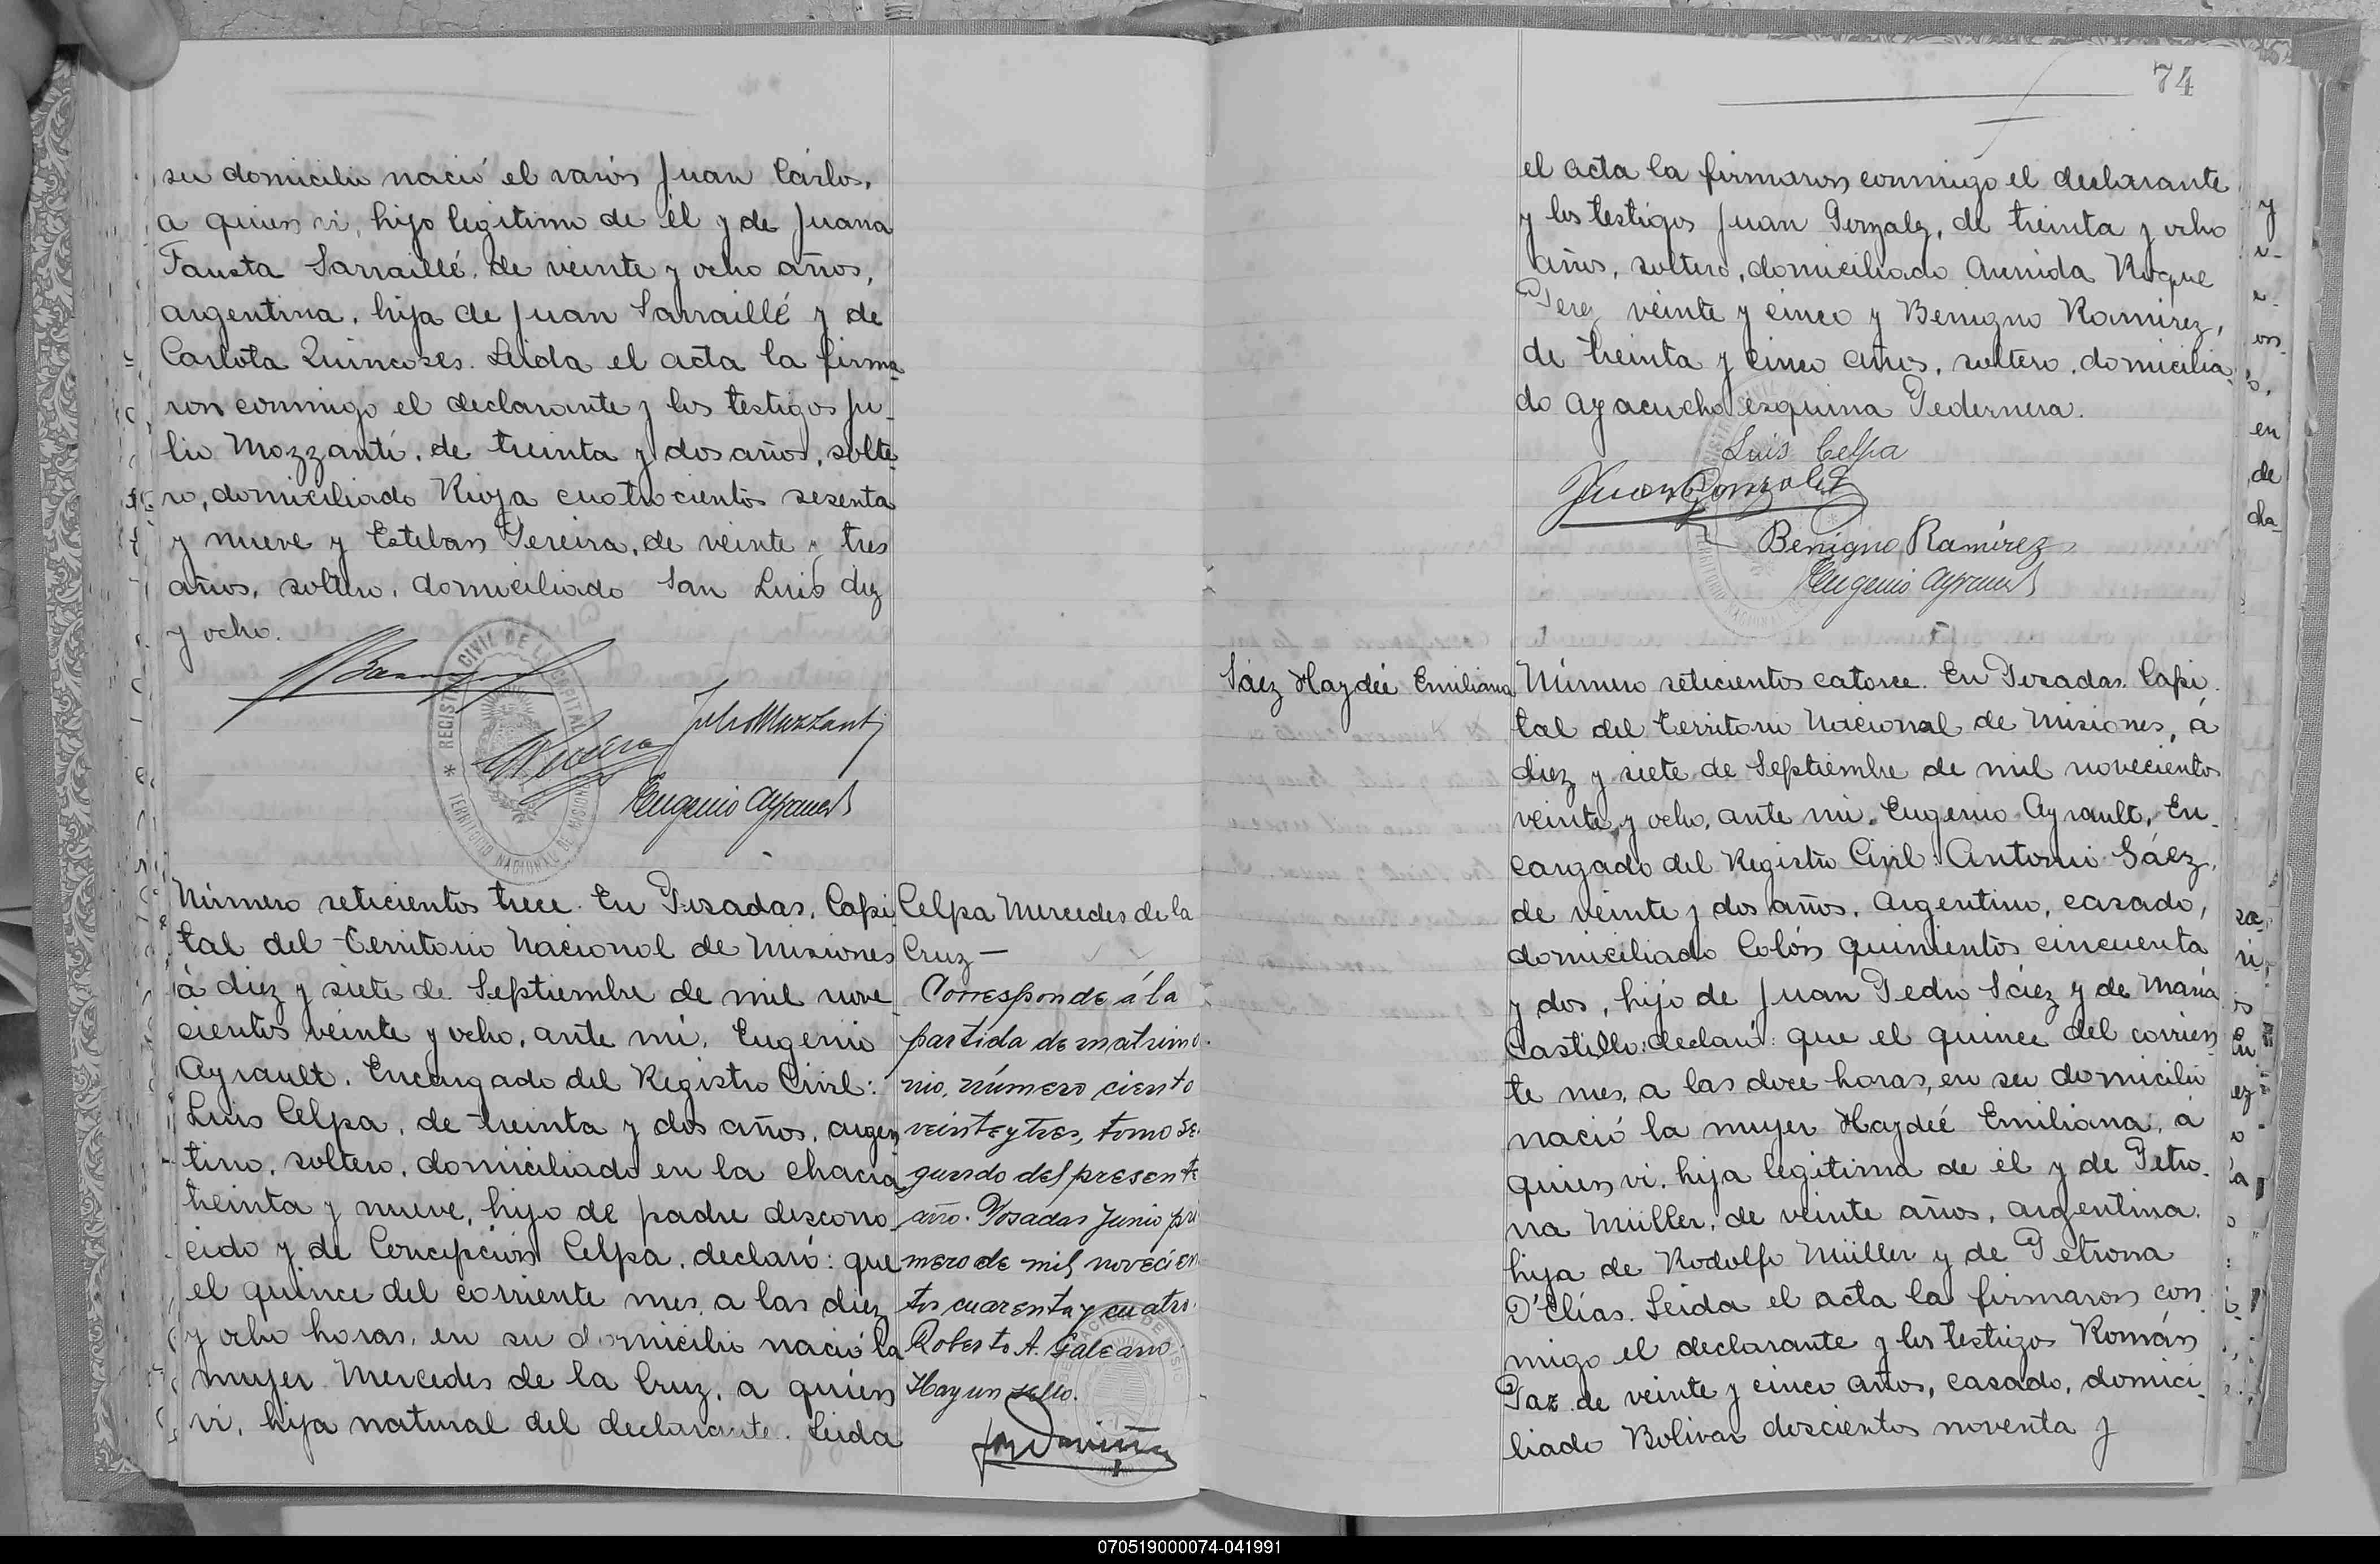 su domicilio nació el varón Juan Cárlos,
a quien vi, hijo legitimo de él y de Juana
Fausta Sarraillé, de veinte y ocho años,
argentina, hija de Juan Sarraillé y de
Carlota Quincoses. Leida el acta la firma
ron conmigo el declarante y los testigos Ju
lio Mozzanti, de treinta y dos años, solte
ro, domiciliado Rioja cuatrocientos sesenta
y nueve y Esteban Pereira, de veinte y tres
años, soltero, domiciliado San Luis diez
y ocho.
REGISTRO CIVIL DE LA CAPITAL
TERRITORIO NACIONAL DE MISIONES
Julio Mozzanti
Eugenio Ayrault
Número seticientos trece. En Posadas, Capi
tal del Territorio Nacional de Misiones
á diez y siete de Septiembre de mil nove
cientos veinte y ocho, ante mi, Eugenio
Ayrault, Encargado del Registro Civil:
Luis Celpa, de treinta y dos años, argen
tino, soltero, domiciliado en la chacra
treinta y nueve, hijo de padre descono
cido y de Concepción Celpa, declaró: que
el quince del corriente mes, a las diez
y ocho horas, en su domicilio nació la
mujer Mercedes de la Cruz, a quien
vi, hija natural del declarante. Leida
Celpa Mercedes de la
Cruz —
Corresponde á la
partida de matrimo
nio, número ciento
veinte y tres, tomo se
gundo del presente
año. Posadas Junio pri
mero de mil novecien
tos cuarenta y cuatro.
Roberto A. Galeano.
Hay un sello.
74
el acta la firmaron conmigo el declarante
y los testigos Juan Gonzalez, de treinta y ocho
años, soltero, domiciliado Avenida Roque
Perez veinte y cinco y Benigno Ramirez,
de treinta y cinco años, soltero, domicilia
do Ayacucho esquina Pedernera.
Luis Celpa
Juan Gonzalez
Benigno Ramírez
Eugenio Ayrault
Sáez Haydée Emiliana
Número seticientos catorce. En Posadas, Capi
tal del Territorio Nacional de Misiones, á
diez y siete de Septiembre de mil novecientos
veinte y ocho, ante mi, Eugenio Ayrault, En
cargado del Registro Civil: Antonio Sáez,
de veinte y dos años, Argentino, casado,
domiciliado Colón quinientos cincuenta
y dos, hijo de Juan Pedro Sáez y de María
Castillo: declaró: que el quince del corrien
te mes, a las doce horas, en su domicilio
nació la mujer Haydée Emiliana, á
quien vi, hija legitima de él y de Petro
na Müller, de veinte años, argentina,
hija de Rodolfo Müller y de Petrona
D'Elías. Leida el acta la firmaron con
migo el declarante y los testigos Román
Paz de veinte y cinco años, casado, domici
liado Bolivar doscientos noventa y
070519000074-041991